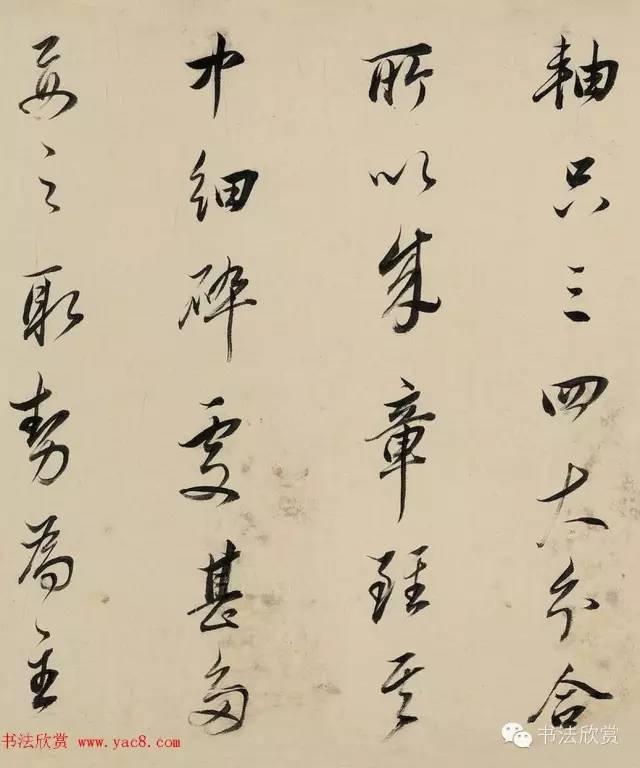 軸只三四大分合
所以成章雖其
中細碎處甚多
要之取勢為主
书法欣赏 www.yac8.com
书法欣赏